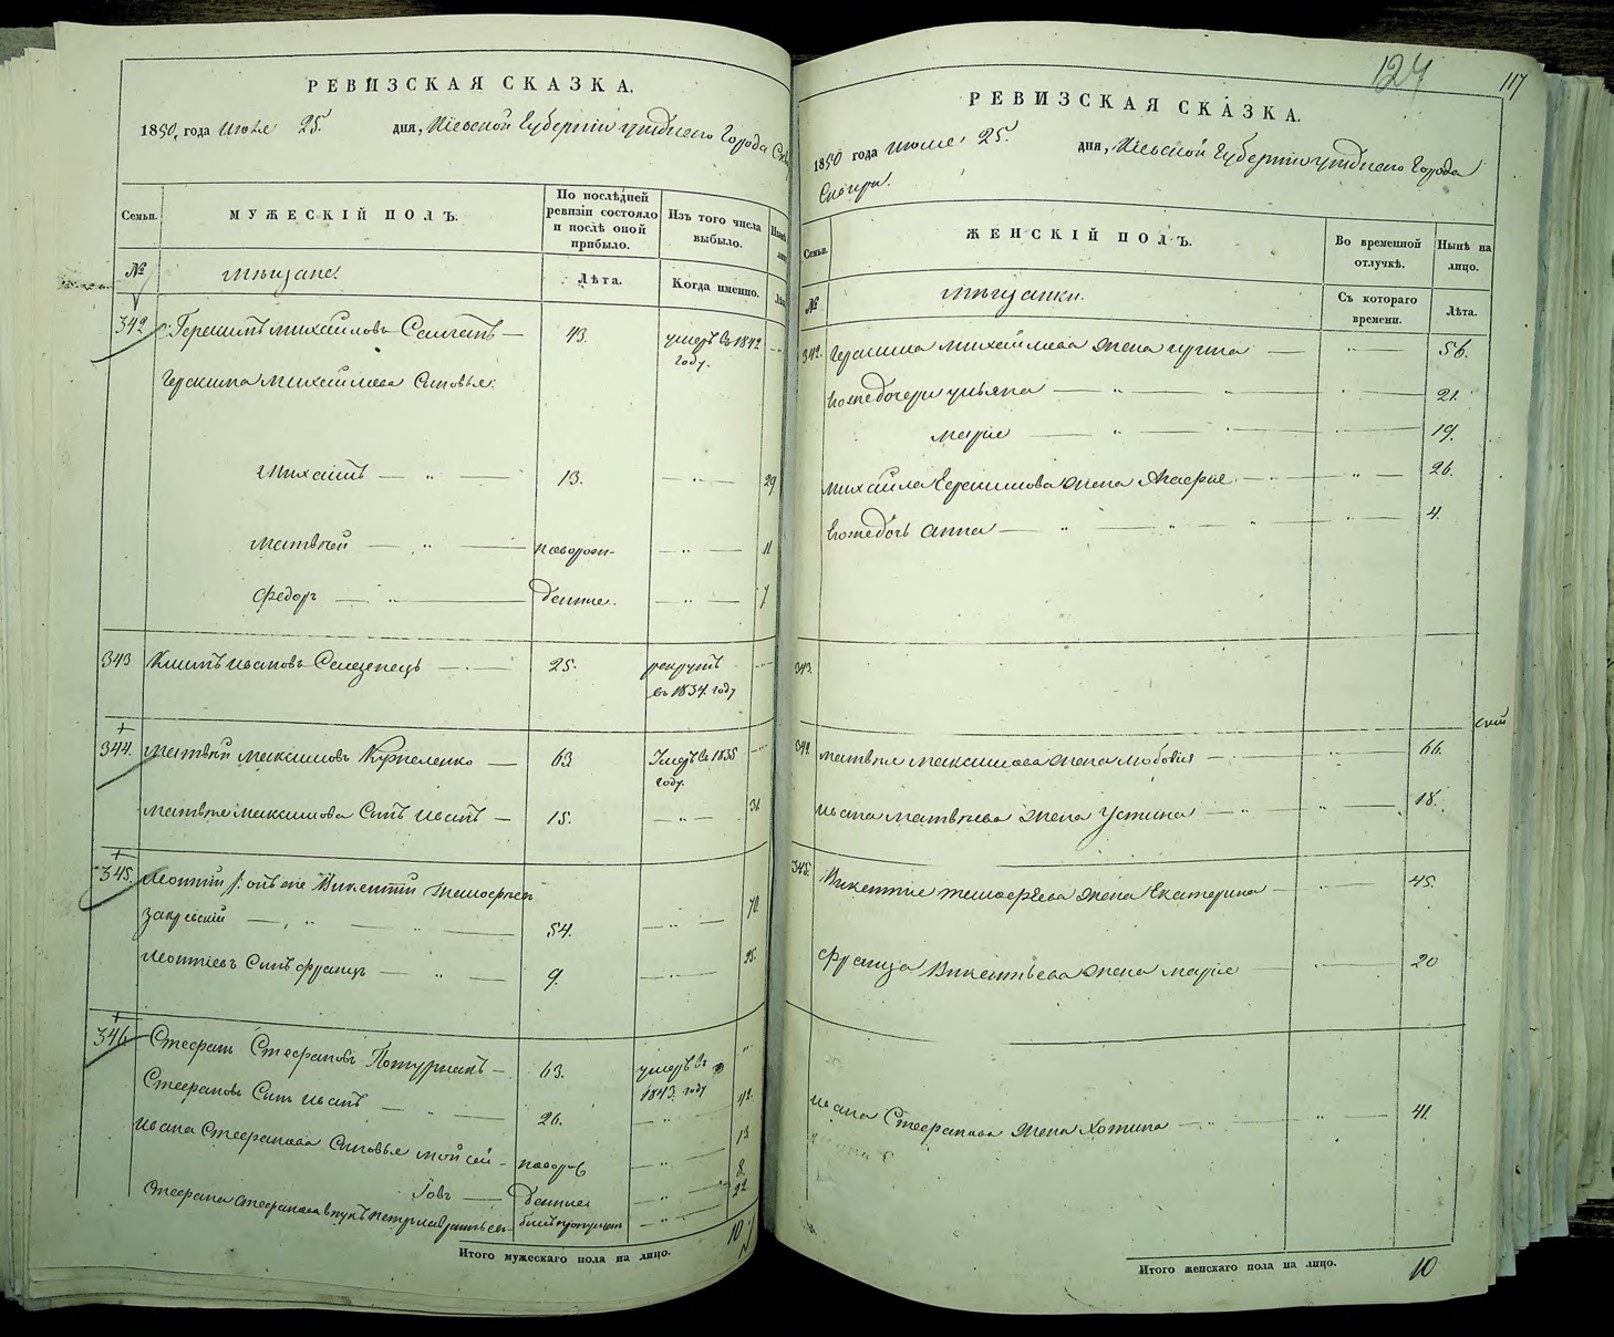 РЕВИЗСКАЯ СКАЗКА.
1850, года Июля 25. дня, Кіевской Губерніи уѣзднаго Города
Семьи. МУЖЕСКІЙ ПОЛЪ. По послѣдней ревизіи состояло и послѣ оной прибыло. Изъ того числа выбыло.
№ мѣщане Лѣта. Когда именно.
342 Герасимъ Михайловъ 43. умеръ въ 1842 году.
Герасима Михайлова Сыновья:
Михаилъ 13. 29
Матвѣй новорож- 11
Федоръ денные. 7
343 Климъ Ивановъ 25. рекрутъ въ 1834 году
344. Матвѣй Максимовъ 63 Умеръ въ 1835 году.
Матвѣя Максимова Сынъ Иванъ 15. 31
345. Леонтій онъ же Викентій
Закревскій 54. 70
Леонтіевъ Сынъ Францъ 9. 25.
346 Стефанъ Стефановъ 63. умеръ въ 1843 году
Стефановъ Сынъ Иванъ 26. 42
Ивана Стефанова Сыновья Мойсей новорож 13
Іовъ денные 8
Стефана Стефанова внукъ Петръ 22
Итого мужескаго пола на лицо. 10
124
117
РЕВИЗСКАЯ СКАЗКА.
1850 года Июля 25 дня, Кіевской Губерніи уѣзднаго Города
Сквиры.
Семьи. ЖЕНСКІЙ ПОЛЪ. Во временной отлучкѣ. Нынѣ на лицо.
№ мѣщанки. Съ котораго времени. Лѣта.
342. Герасима Михайлова жена 56.
Его же дочери Ульяна 21.
Марія 19.
Михайла Герасимова жена Агафія 26.
Его же дочь Анна 4.
343.
344. Матвѣя Максимова жена 66.
Ивана Матвѣева жена Устина 18.
345. Викентія жена Екатерина 45.
Франца Викентьева жена Марія 20
Ивана Стефанова жена 41.
Итого женскаго пола на лицо. 10